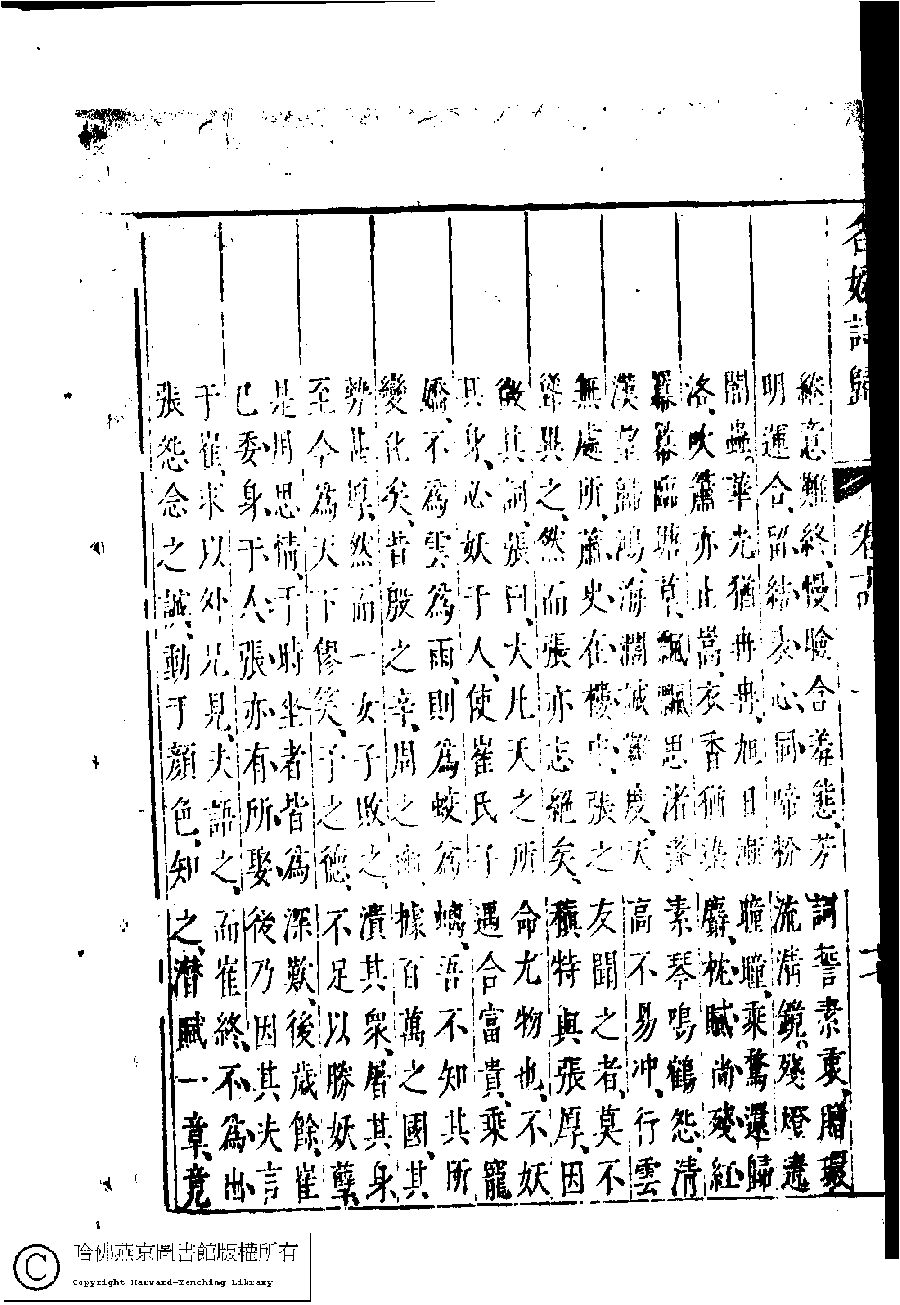 名媛詩歸
綣意難終、慢臉含愁態、芳詞誓素衷、贈環
明運合、留結表心同、啼粉流清鏡、殘燈遶
闇蟲、華光猶冉冉、旭日漸曈曈、乘鶩還歸
洛、吹簫亦止嵩、衣香猶染麝、枕膩尚殘紅
冪冪臨塘草、飄飄思渚蓬、素琴鳴鶴怨、清
漢望歸鴻、海濶誠難度、天高不易冲、行雲
無處所、蕭史在樓中、張之友聞之者、莫不
聳異之、然而張亦志絕矣、稹特與張厚、因
徵其詞、張曰、大凡天之所命尤物也、不妖
其身、必妖于人、使崔氏子遇合富貴、乘寵
嬌、不為雲為雨、則為蛟為螭、吾不知其所
變化矣、昔殷之辛、周之幽、據百萬之國、其
勢甚厚、然而一女子敗之、潰其衆、屠其身、
至今為天下僇笑、予之德、不足以勝妖孽、
是用思情、于時坐者皆為深歎、後歲餘、崔
已委身于人、張亦有所娶、後乃因其夫言
于崔、求以外兄見、夫語之、而崔終不為出、
張怨念之誠、動于顏色、知之、潛賦一章、竟
哈佛燕京圖書館版權所有
Copyright Harvard-Yenching Library